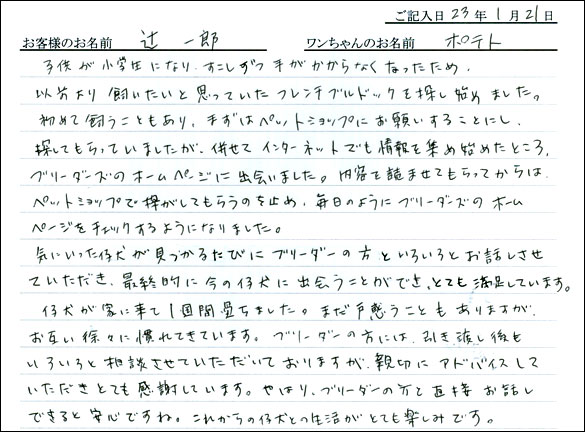 ご記入日 23年 1月 21日
お客様のお名前 辻 一郎 ワンちゃんのお名前 ポテト
子供が小学生になり、すこしずつ手がかからなくなったため、
以前より飼いたいと思っていたフレンチブルドックを探し始めました。
初めて飼うこともあり、まずはペットショップにお願いすることにし、
探してもらっていましたが、併せてインターネットでも情報を集め始めたところ、
ブリーダーズのホームページに出会いました。内容を読ませてもらってからは、
ペットショップで探がしてもらうのを止め、毎日のようにブリーダーズのホーム
ページをチェックするようになりました。
気にいった仔犬が見つかるたびにブリーダーの方といろいろとお話しさせ
ていただき、最終的に今の仔犬に出会うことができ、とても満足しています。
仔犬が家に来て1週間経ちました。まだ戸惑うこともありますが、
お互い徐々に慣れてきています。ブリーダーの方には、引き渡し後も
いろいろと相談させていただいておりますが、親切にアドバイスして
いただきとても感謝しています。やはり、ブリーダーの方と直接お話し
できると安心ですね。これからの仔犬との生活がとても楽しみです。